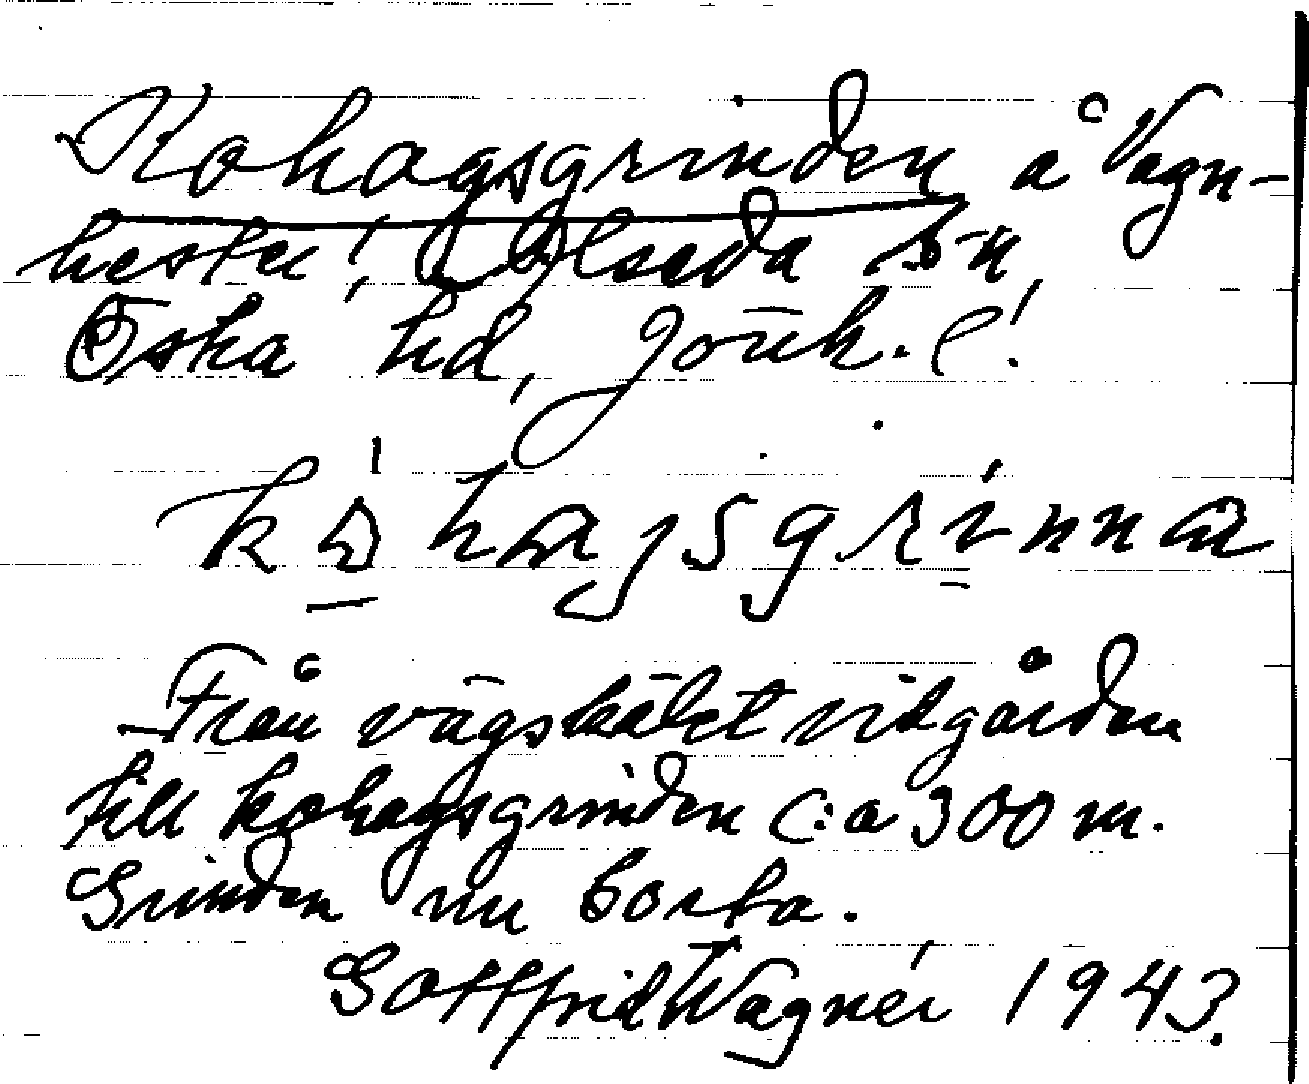 Kohagsgrinden å Vagn-
hester! Alseda s-n,
Östra hd, Jönk. l.!
kohagsgrinna
Från vägskälet vid gården
till kohagsgrinden c:a 300 m.
Grinden nu borta.
Gottfrid Wagnér 1943.